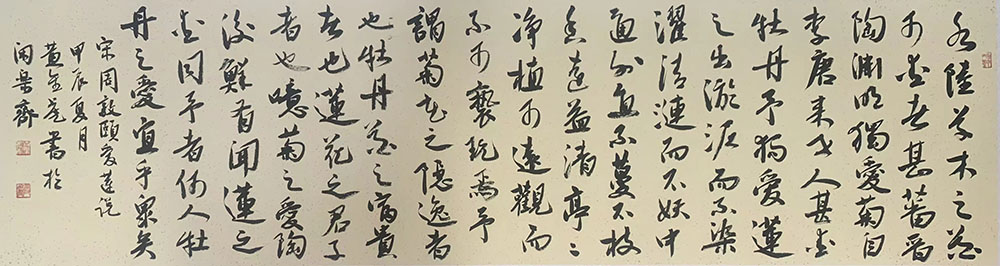 水陸草木之花
可愛者甚蕃晉
陶淵明獨愛菊自
李唐来世人甚愛
牡丹予獨愛蓮
之出淤泥而不染
濯清漣而不妖中
通外直不蔓不枝
香遠益清亭〻
净植可遠觀而
不可褻玩焉予
謂菊花之隱逸者
也牡丹花之富貴
者也蓮花之君子
者也噫菊之愛陶
後鮮有聞蓮之
愛同予者何人牡
丹之愛宜乎衆矣
宋周敦頤愛蓮說
甲辰夏月
黄金書於
齋